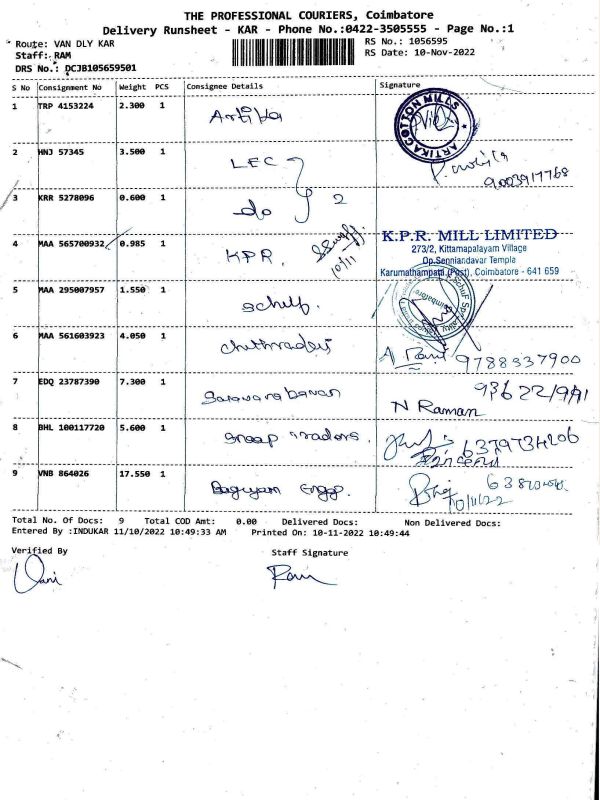 THE PROFESSIONAL COURIERS, Coimbatore
Delivery Runsheet - KAR - Phone No.:0422-3505555 - Page No.:1
Route: VAN DLY KAR
RS No.: 1056595
Staff: RAM
RS Date: 10-Nov-2022
DRS No.: DCJB105659501
S No Consignment No Weight PCS Consignee Details Signature
1 TRP 4153224 2.300 1 Artika
ARTIKA COTTON MILLS
2 HNJ 57345 3.500 1 LEC
9003917768
3 KRR 5278096 0.600 1 do 2
4 MAA 565700932 0.985 1 KPR. 10/11
K.P.R. MILL LIMITED
273/2, Kittamapalayam Village
Op.Senniandavar Temple
Karumathampatti (Post), Coimbatore - 641 659
5 MAA 295007957 1.550 1
Coimbatore
6 MAA 561603923 4.050 1 9788337900
7 EDQ 23787390 7.300 1 N Raman
8 BHL 100117720 5.600 1
9 VNB 864026 17.550 1 10/11/22
Total No. Of Docs: 9 Total COD Amt: 0.00 Delivered Docs: Non Delivered Docs:
Entered By :INDUKAR 11/10/2022 10:49:33 AM Printed On: 10-11-2022 10:49:44
Verified By Staff Signature
Vani Ram